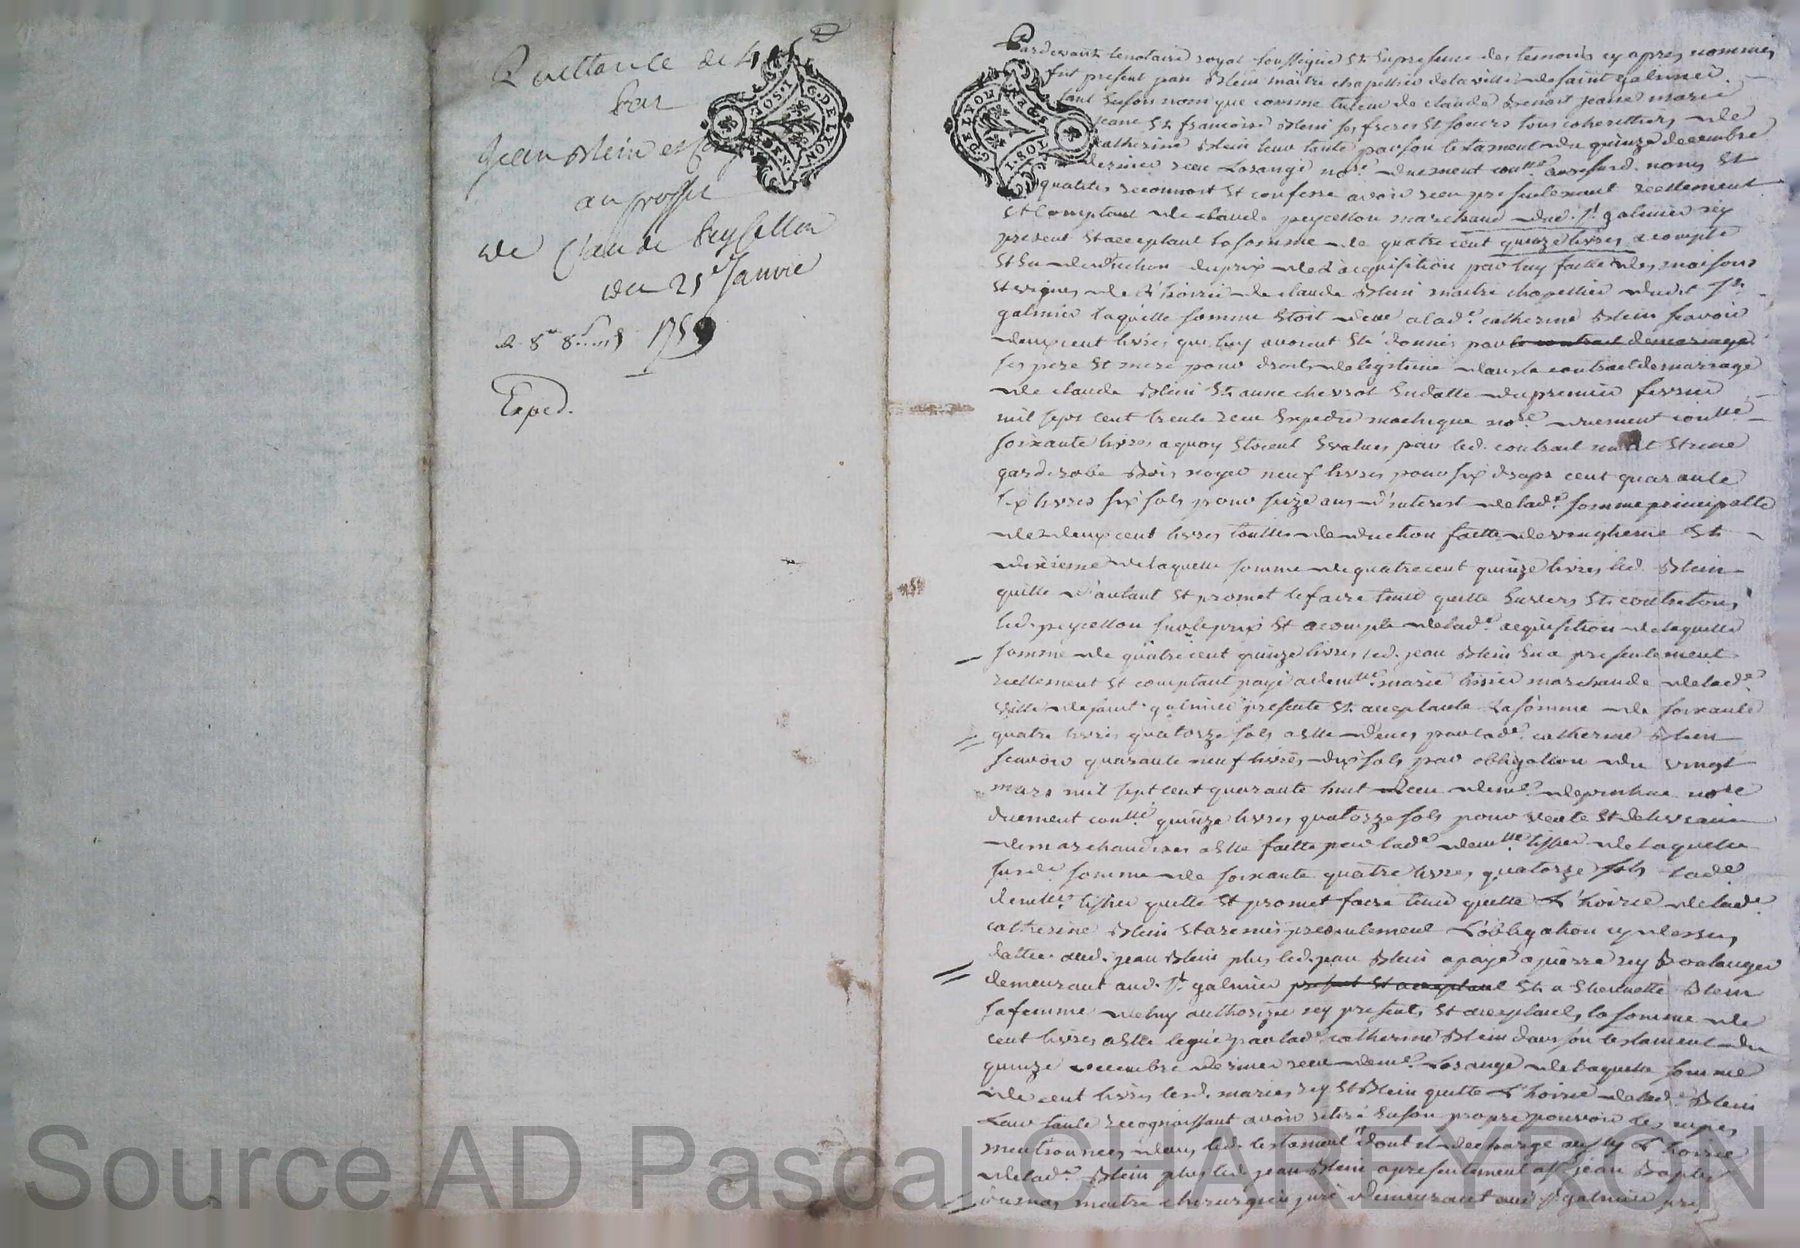 Quittance de 415
par
Jean Blein et
au proffit
de Claude Peyssellon
du 25 Janvie
1759
Exped.
G. DE LYON
G. DE LYON
Pardevant le notaire royal soussigné et en presence des temoins cy apres nommés
fut présent jean Blein maitre chapellier de la ville de saint galmier
tant en son nom que comme tuteur de claude Benoit jeanne marie
jeane et francoise Blein ses freres et soeurs tous coheritiers de
catherine Blein leur tante par son testament du quinze decembre
dernier receu Losange nore. duement conttlé. auxsusd. noms et
qualités reconnoit et confesse avoir receu presentement reellement
et comptant de claude peycellon marchand dud. st. galmier icy
present et acceptant la somme de quatre cent quinze livres a compte
et en deduction du prix de l'acquisition par luy faitte des maisons
et vignes de l'hoirie de claude Blein maitre chapellier dudit st.
galmier laquelle somme etoit deue a lade. catherine Blein scavoir
deux cent livres que luy avoient eté donnés par le contract de mariage
ses pere et mere pour droits de legitime dans le contract de mariage
de claude Blein et anne chevrot en datte du premier fevrier
mil sept cent trente receu nore. duement conttlé
soixante livres a quoy etoient evalués par led. contrait un lit et une
garderobe bois noyer neuf livres pour six draps cent quarante
six livres six sols pour seize ans d'interest de lade. somme principalle
de deux cent livres touttes deduction faitte de vingtieme et
dixieme de laquelle somme de quatre cent quinze livres led. Blein
quitte d'autant et promet le faire tenir quitte envers et contre tous
led. peycellon sur le prix et a compte de lade. acquisition de laquelle
somme de quatre cent quinze livres led. jean Blein en a presentement
reellement et comptant payé a demlle. marie tissier marchande de lade.
ville de saint galmier presente et acceptante la somme de soixante
quatre livres quatorze sols a elle deues par lade. catherine Blein
scavoir quarante neuf livres dix sols par obligation du vingt
mars mil sept cent quarante huit receu nore
duement conttlé quinze livres quatorze sols pour vente et delivrance
de marchandises a elle faitte par lade. demlle. tissier de laquelle
susde. somme de soixante quatre livres quatorze sols lade.
demlle. tissier quitte et promet faire tenir quitte L'hoirie de lade.
catherine Blein et a remis presentement L'obligation cy dessus
dattée aud. jean Blein plus led. jean Blein a payé a pierre rey Boulanger
demeurant aud. st. galmier present et acceptant et a Benoitte Blein
sa femme de luy authorizée icy presents et acceptants la somme de
cent livres a elle leguée par lade. catherine Blein dans son testament du
quinze decembre dernier receu Losange de laquelle somme
de cent livres lesd. mariés rey et Blein quitte L'hoirie de lade. Blein
Leur tante reconnoissant avoir retiré en son propre pouvoir les nipes
mentionnées dans led. testament dont il decharge aussy L'hoirie
de lade. Blein plus led. jean Blein a presentement a sr. jean Baptiste
maitre chirurgien juré demeurant aud. st. galmier pré
Source AD Pascal CHAREYRON